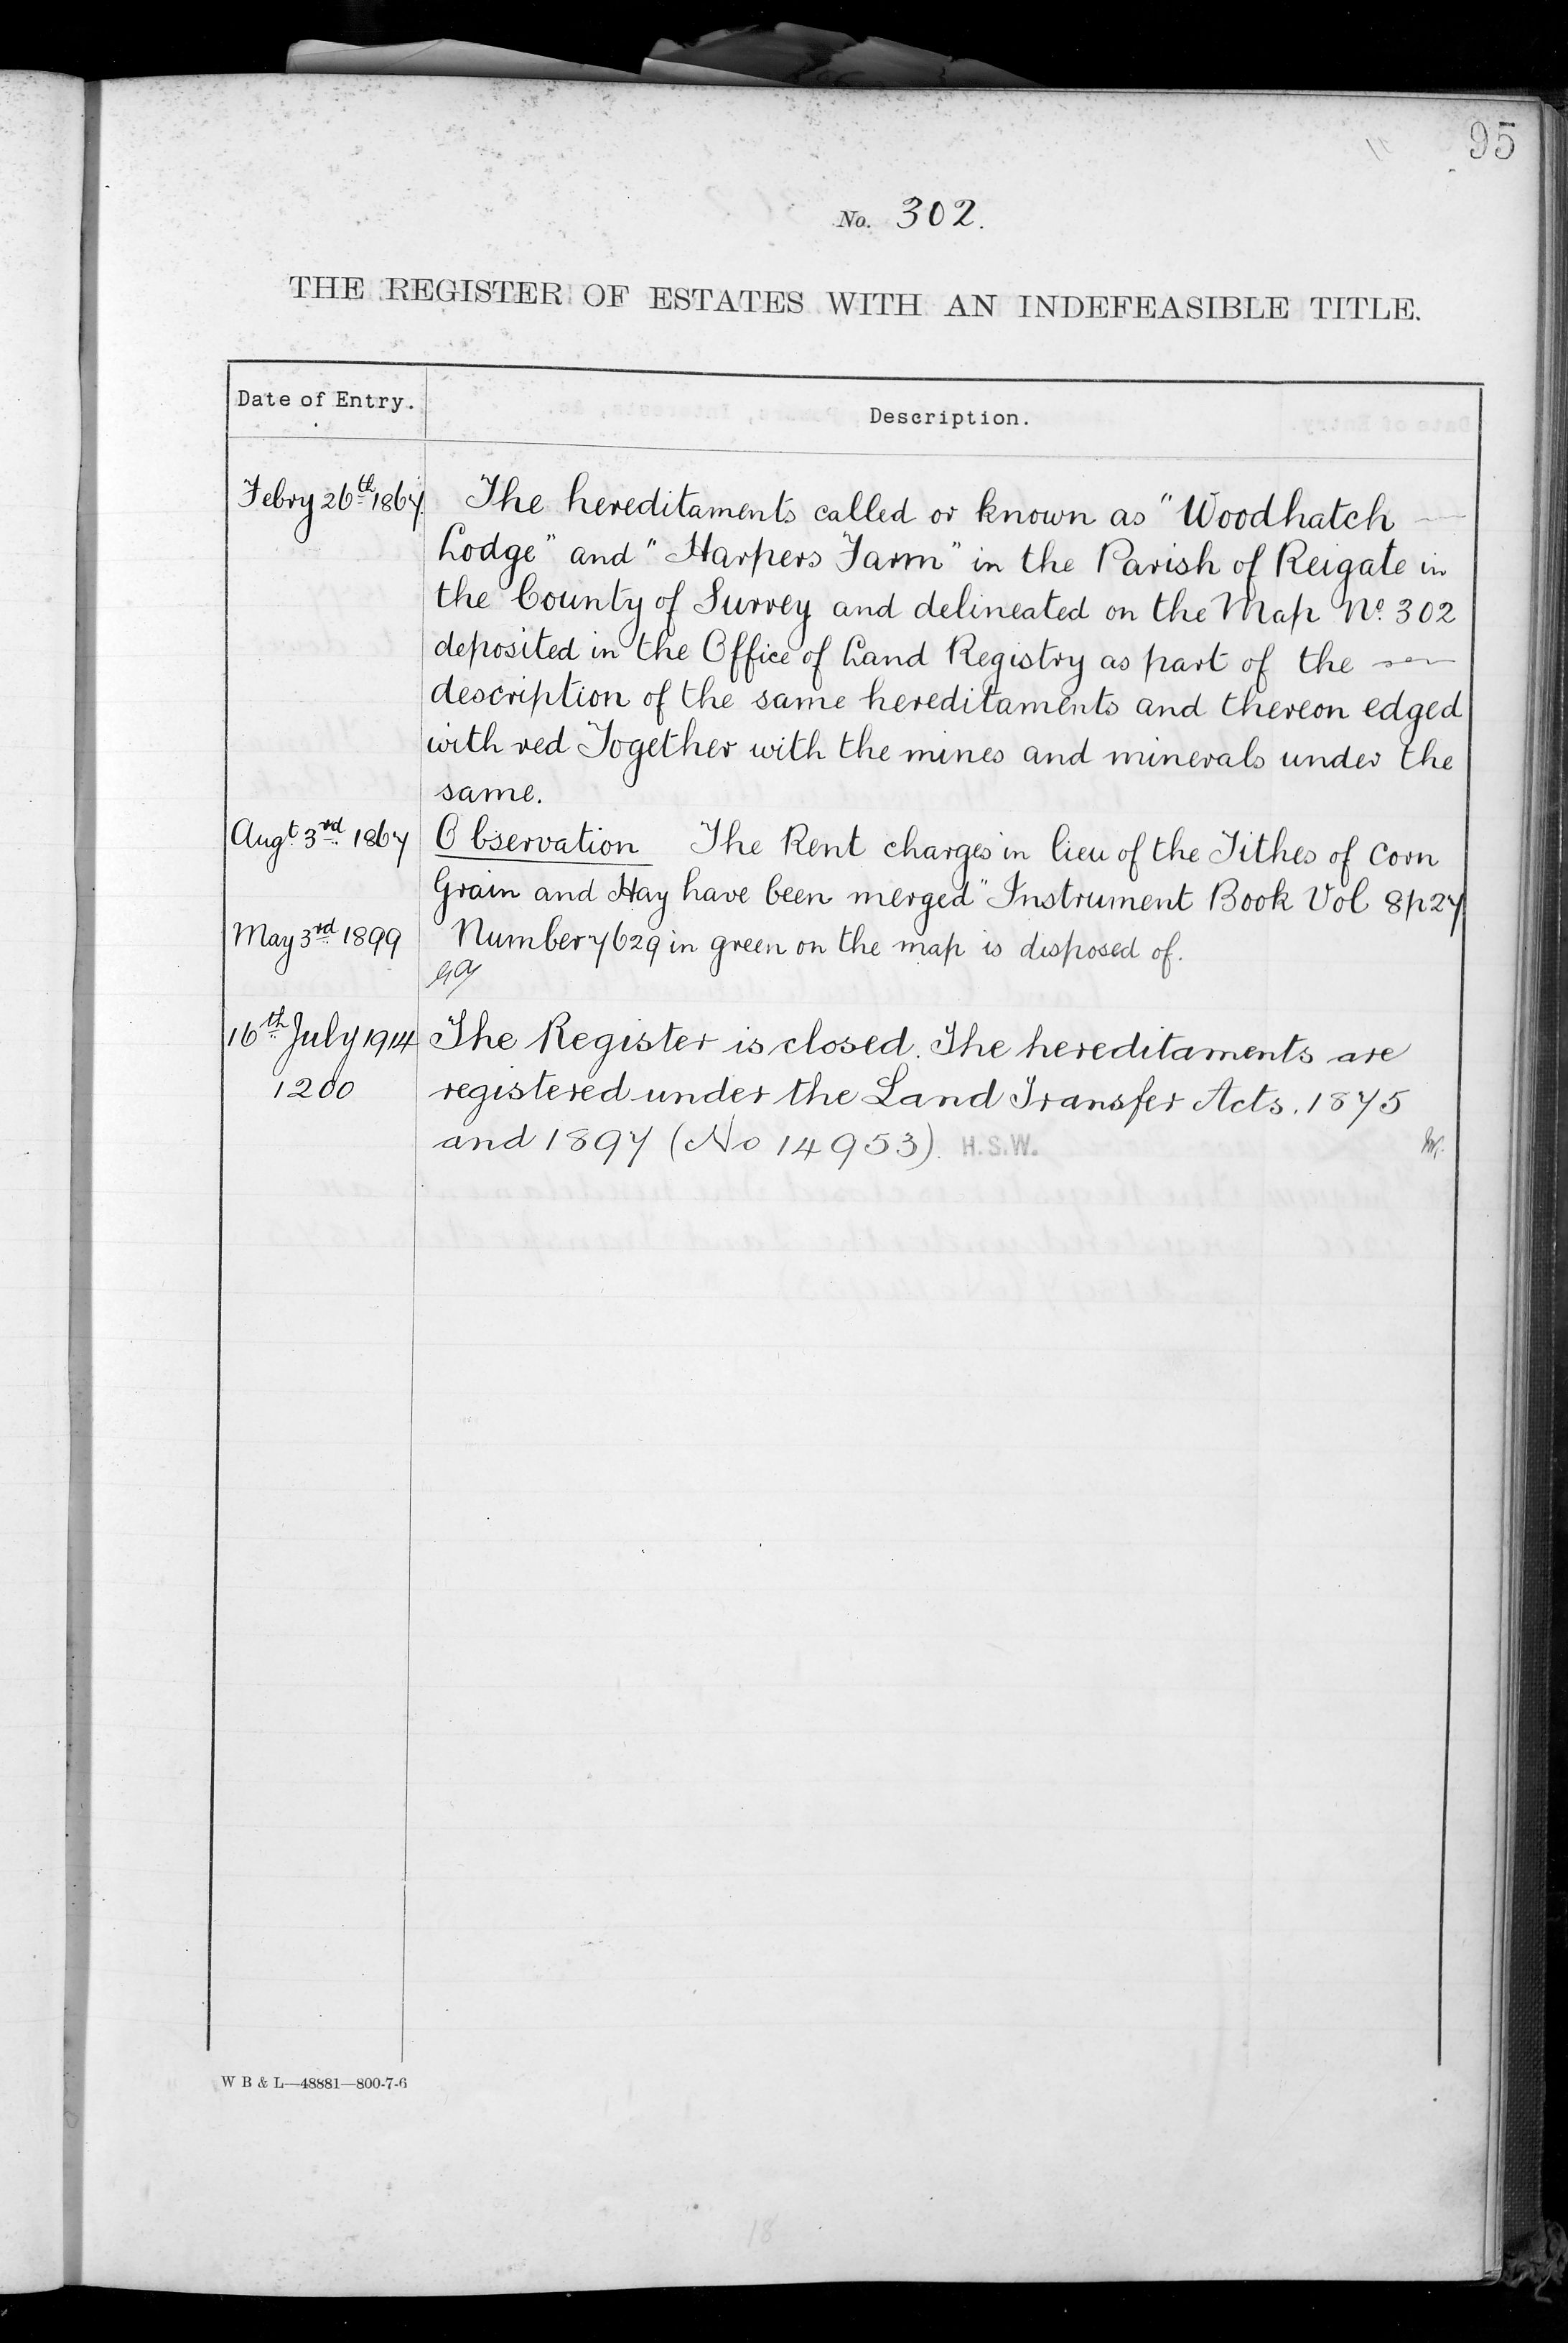 95
No. 302.
THE REGISTER OF ESTATES WITH AN INDEFEASIBLE TITLE.
Date of Entry.
Description.
Febry 26th 1867. The hereditaments called or known as "Woodhatch
Lodge" and "Harpers Farm" in the Parish of Reigate in
the County of Surrey and delineated on the Map No. 302
deposited in the Office of Land Registry as part of the
description of the same hereditaments and thereon edged
with red Together with the mines and minerals under the
same.
Augt. 3rd. 1867 Observation The Rent charges in lieu of the Tithes of Corn
Grain and Hay have been merged" Instrument Book Vol 8p27
May 3rd. 1899 Number 7629 in green on the map is disposed of.
16th. July 1914 The Register is closed. The hereditaments are
1200 registered under the Land Transfer Acts. 1875
and 1897 (No 14953). H.S.W.
W B & L—48881—800-7-6
18